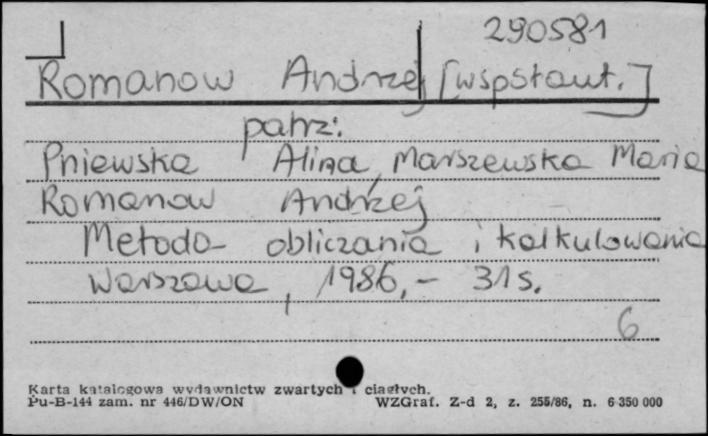 290581
Romanow Andrzej [współaut.]
patrz:
Pniewska Alina, Marszewska Maria
Romanow Andrzej
Metoda obliczania i kalkulowania
Warszawa, 1986,- 31 s.
6
Karta katalogowa wydawnictw zwartych i ciągłych.
Pu-B-144 zam. nr 446/DW/ON WZGraf. Z-d 2, z. 255/86, n. 6 350 000